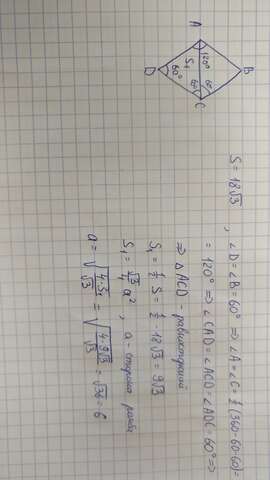 A
B
C
D
120°
60
60°
60°
S₁
S = 18√3 , ∠D = ∠B = 60° ⇒ ∠A = ∠C = ½(360-60-60) =
= 120° ⇒ ∠CAD = ∠ACD = ∠ADC = 60° ⇒
⇒ △ACD равносторонний
S₁ = ½ S = ½ · 18√3 = 9√3
S₁ = √3/4 a² , a - сторона ромба
a = √(4·S₁/√3) = √(4·9√3/√3) = √36 = 6